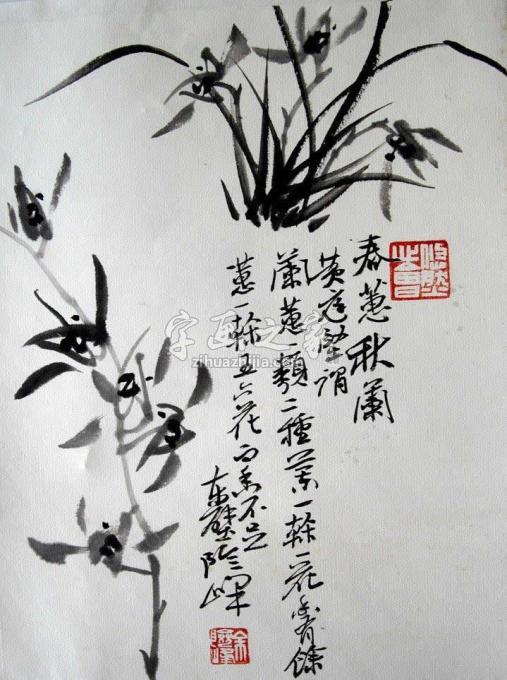 春蕙秋蘭
黄庭堅謂
蘭蕙一類二種蘭一榦一花香餘
蕙一榦五六花而香不足
字画之家
zihuazhijia.com